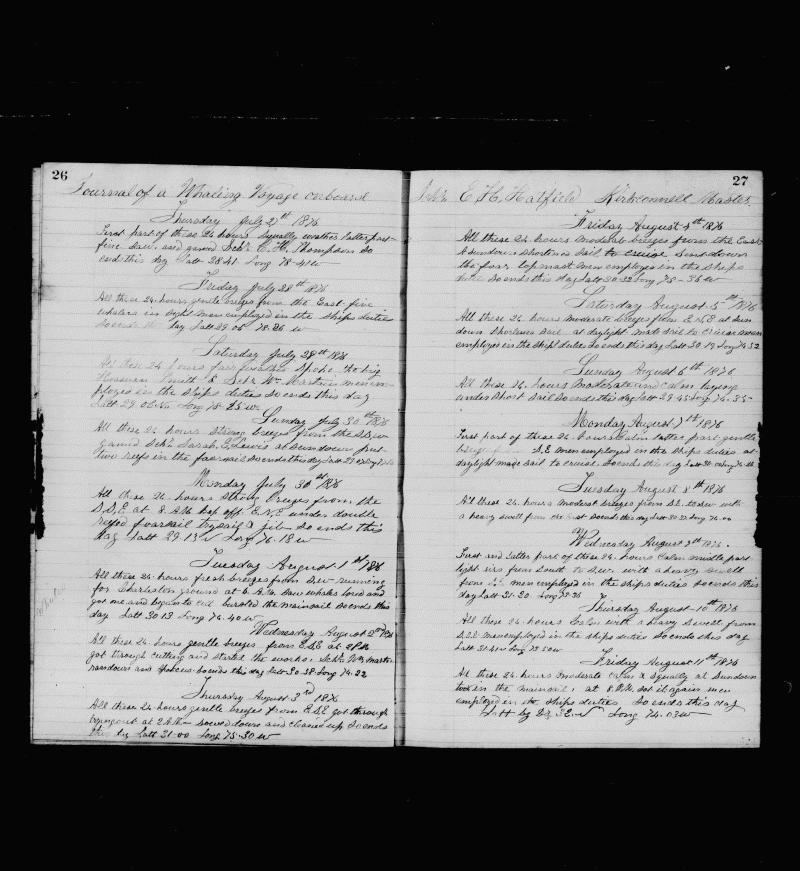 26
Journal of a Whaling Voyage onboard
Thursday July 27th 1876
First part of these 24 hours squally weather latter part
fine saw and gamed Schr C. H. Thompson So
ends this day Latt 28.41 Long 78.41 w
Friday July 28th 1876
All these 24 hours gentle breezes from the East five
whalers in sight men employed in the ships duties
So ends this day Latt 29.06 78.26 w
Saturday July 29th 1876
All these 24 hours fair weather Spoke the brig
Smith & Schr Wm Martin men em-
ployed in ships duties so ends this day
Latt 29.06 N Long 78.25 w
Sunday July 30th 1876
All these 24 hours strong breezes from the S.S.W
gamed Schr Sarah E. Lewis at Sundown put
two reefs in the foarsail So ends this day Latt 29
Monday July 30th 1876
All these 24 hours strong breezes from the
S.S.E at 8. A.M kep off E.N.E under double
reefed foarsail trysail & jib so ends this
day Latt 29.13 N Long 76.18 w
Tuesday August 1st 1876
All these 24 hours fresh breezes from S.W running
for Charleston ground at 6. A.M. saw whales lowed and
got one and began to cut bursted the mainsail So ends this
day Latt 30 13 Long 74.40 w
Wednesday August 2nd 1876
All these 24 hours gentle breezes from E.S.E at 2 P.M
got through cutting and started the works. Schr Wm Martin
ran down and spoke us So ends this day Latt 30.38 Long 74.22
Thursday August 3rd 1876
All these 24 hours gentle breezes from E.S.E got through
trying out at 2 A.M sowed down and cleaned up So ends
this day Latt 31.00 Long 75.30 w
27
Schr E. H. Hatfield Kirkconnell Master
Friday August 4th 1876
All these 24 hours moderate breezes from the East
at Sundown Shortened Sail to cruise Sent down
the foar top mast men employed in the ships
duties So ends this day Latt 30.32 Long 75-36 w
Saturday August 5th 1876
All these 24 hours moderate breezes from E.N.E at Sun
down Shortened sail at daylight made sail to cruise men
employed in the ships duties So ends this day Latt 30.19 Long 74.52
Sunday August 6th 1876
All these 24 hours moderate and calm lying
under Short Sail So ends this day Latt 29.45 Long 74.35
Monday August 7th 1876
First part of these 24 hours calm latter part gentle
breeze from S.E men employed in the ships duties at
daylight made sail to cruise. So ends this day Latt 30
Tuesday August 8th 1876
All these 24 hours modest breezes from S.E. to S.W with
a heavy swell from the East So ends this day Latt 30.22 Long 74.00
Wednesday August 9th 1876.
First and Latter part of these 24 hours Calm middle part
light airs from South to S.W. with a heavy swell
from S.E. men employed in the ships duties So ends this
day Latt 31-30 Long
Thursday August 10th 1876
All these 24 hours Calm with a heavy swell from
S.S.E men employed in the ships duties So ends this day
Latt 31.41 N Long
Friday August 11th 1876
All these 24 hours moderate calm & squally at Sundown
took in the mainsail, at 8 P.M. set it again men
employed in the ships duties So ends this day
Latt by 32 N Long 74.03 w